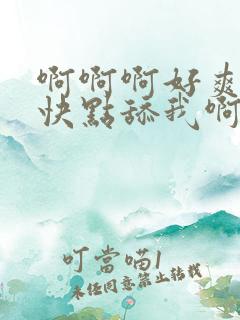 啊啊啊好爽
快點舔我啊
叮當喵1
未经同意禁止转载